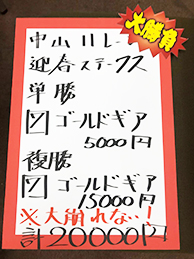 大勝負
中山11レース
迎春ステークス
単勝
ゴールドギア
5000円
複勝
ゴールドギア
15000円
※大崩れない!
計20000円